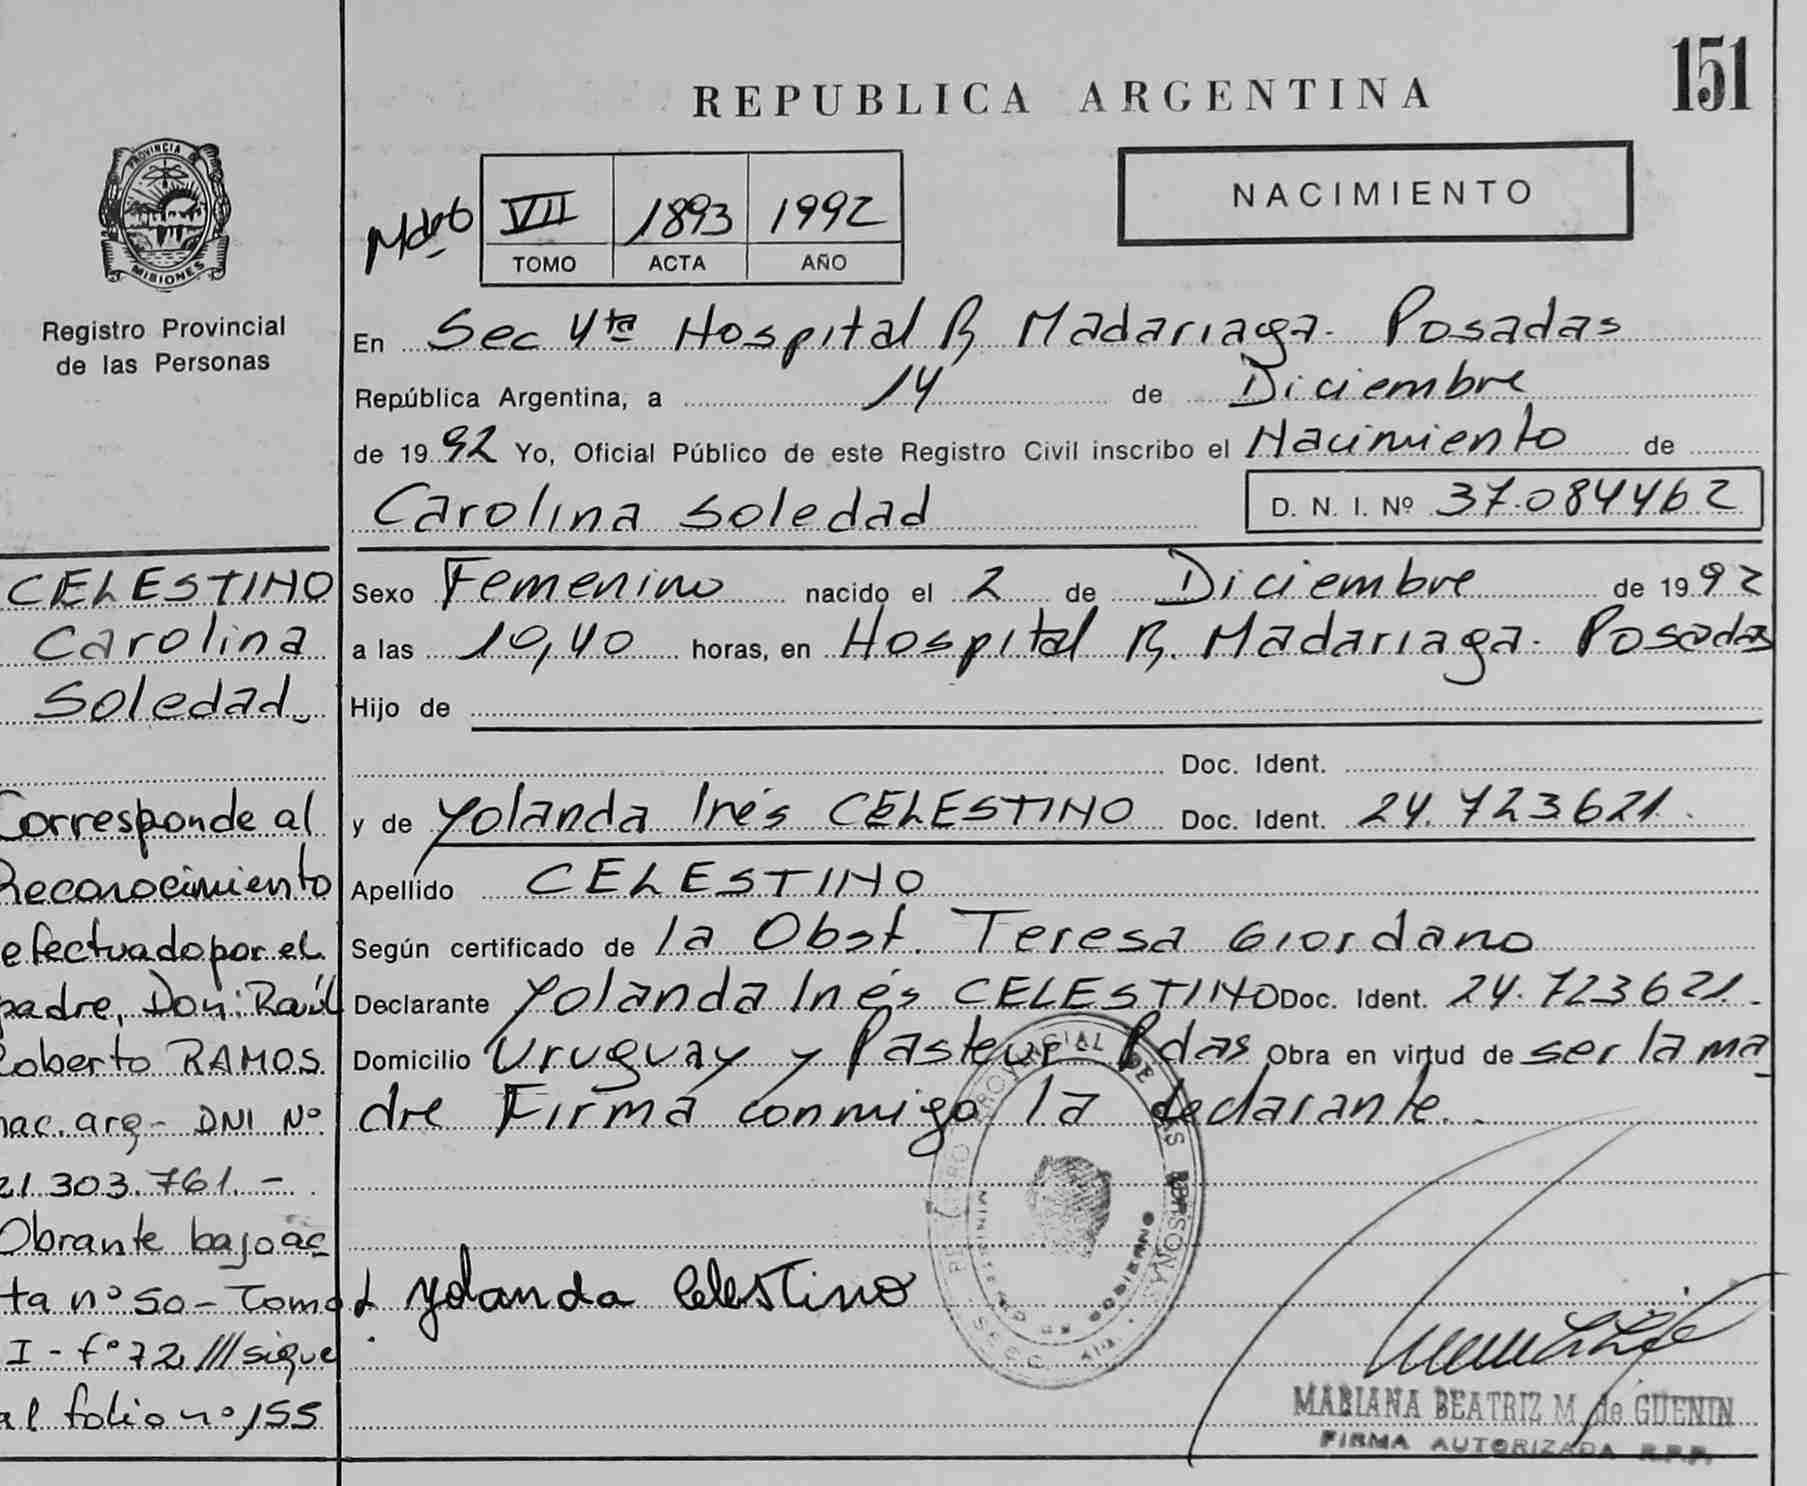 151
REPUBLICA ARGENTINA
NACIMIENTO
VII 1893 1992
TOMO ACTA AÑO
PROVINCIA DE
MISIONES
Registro Provincial
de las Personas
En Sec 4ta Hospital R. Madariaga. Posadas
República Argentina, a 14 de Diciembre
de 1992 Yo, Oficial Público de este Registro Civil inscribo el Nacimiento de
Carolina Soledad D. N. I. Nº 37.084462
Sexo Femenino nacido el 2 de Diciembre de 1992
a las 10,40 horas, en Hospital R. Madariaga. Posadas
Hijo de
Doc. Ident.
y de Yolanda Inés CELESTINO Doc. Ident. 24.723621.
Apellido CELESTINO
Según certificado de la Obst. Teresa Giordano
Declarante Yolanda Inés CELESTINO Doc. Ident. 24.723621.
Domicilio Uruguay y Pasteur Pdas Obra en virtud de ser la ma
dre Firma conmigo la declarante.
Yolanda Celestino
MARIANA BEATRIZ M. de GUENIN
FIRMA AUTORIZADA R.P.P.
CELESTINO
Carolina
Soledad
Corresponde al
Reconocimiento
efectuado por el
padre, Don: Raúl
Roberto RAMOS
nac. arg- DNI Nº
21.303.761.-
Obrante bajo ac
ta nº 50- Tomo
I - fº 72 /// sigue
al folio nº 155
REGISTRO PROVINCIAL DE LAS PERSONAS
MINISTERIO DE GOBIERNO